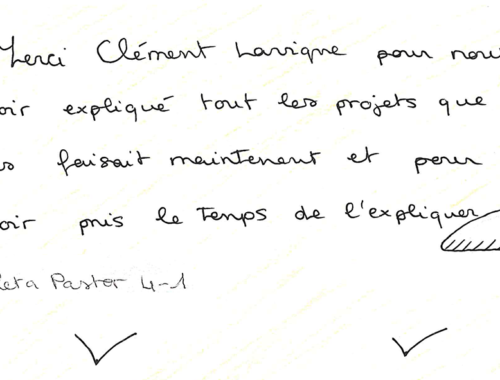 Merci Clément Lavigne pour nou
oir expliqué tout les projets que
faisait maintenant et pour
oir pris le temps de l'expliquer
eta Pastor 4-1